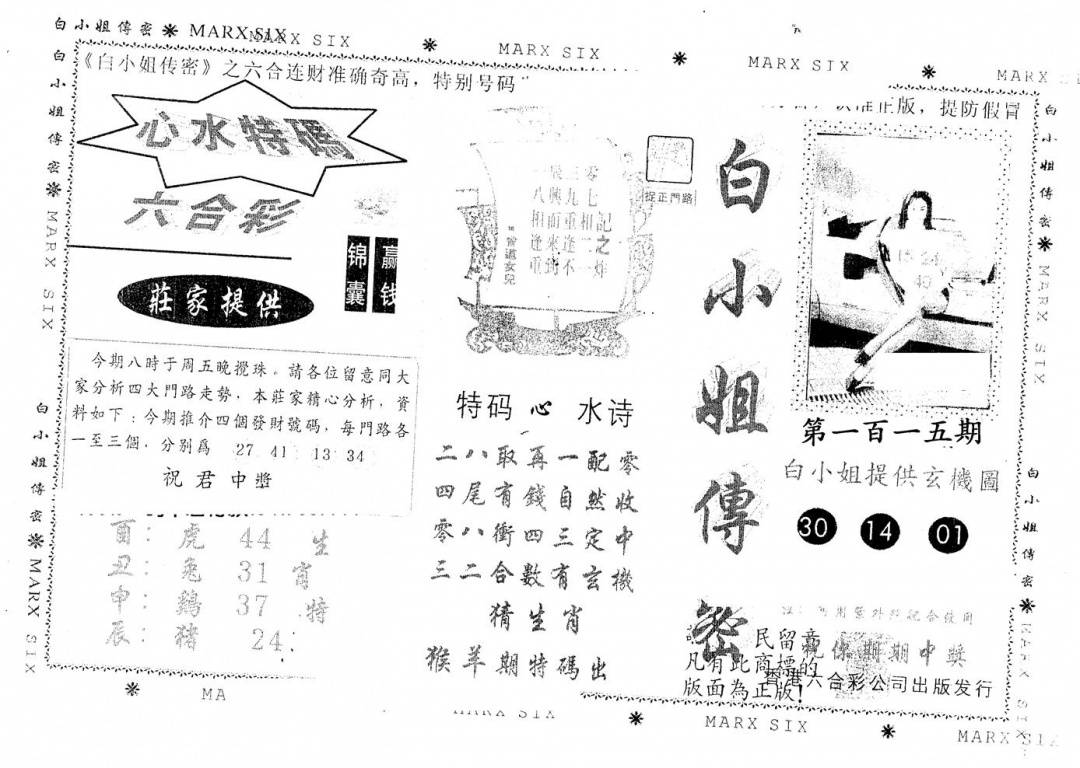 白小姐傳密 ✳ MARX SIX
MARX SIX ✳ MARX SIX ✳ MARX SIX ✳ MARX
《白小姐传密》之六合连财准确奇高，特别号码
正版，提防假冒
心水特碼
六合彩
锦囊
赢钱
莊家提供
今期八時于周五晚攪珠。請各位留意同大
家分析四大門路走勢，本莊家精心分析，資
料如下：今期推介四個發財號碼，每門路各
一至三個，分别爲 27 41 13 34
祝君中獎
酉：虎 44 生
丑：兔 31 肖
申：鷄 37 特
辰：豬 24
捉正門路
零七記之
三九相二
展興重逢不
一八相逢重
曾道女兒
特码心水诗
二八取再一配零
四尾有錢自然收
零八衝四三定中
三二合數有玄機
猜生肖
猴羊期特碼出
白小姐傳密
第一百一五期
白小姐提供玄機圖
30 14 01
民留意
凡有此商標的
版面為正版!
祝你期期中獎
香港六合彩公司出版发行
白小姐傳密 ✳ MARX SIX
白小姐傳密 ✳ MARX SIX
白小姐傳密 ✳ MARX SIX
白小姐傳密 ✳ MARX SIX
✳ MA
MARX SIX ✳ MARX SIX ✳ MARX SIX